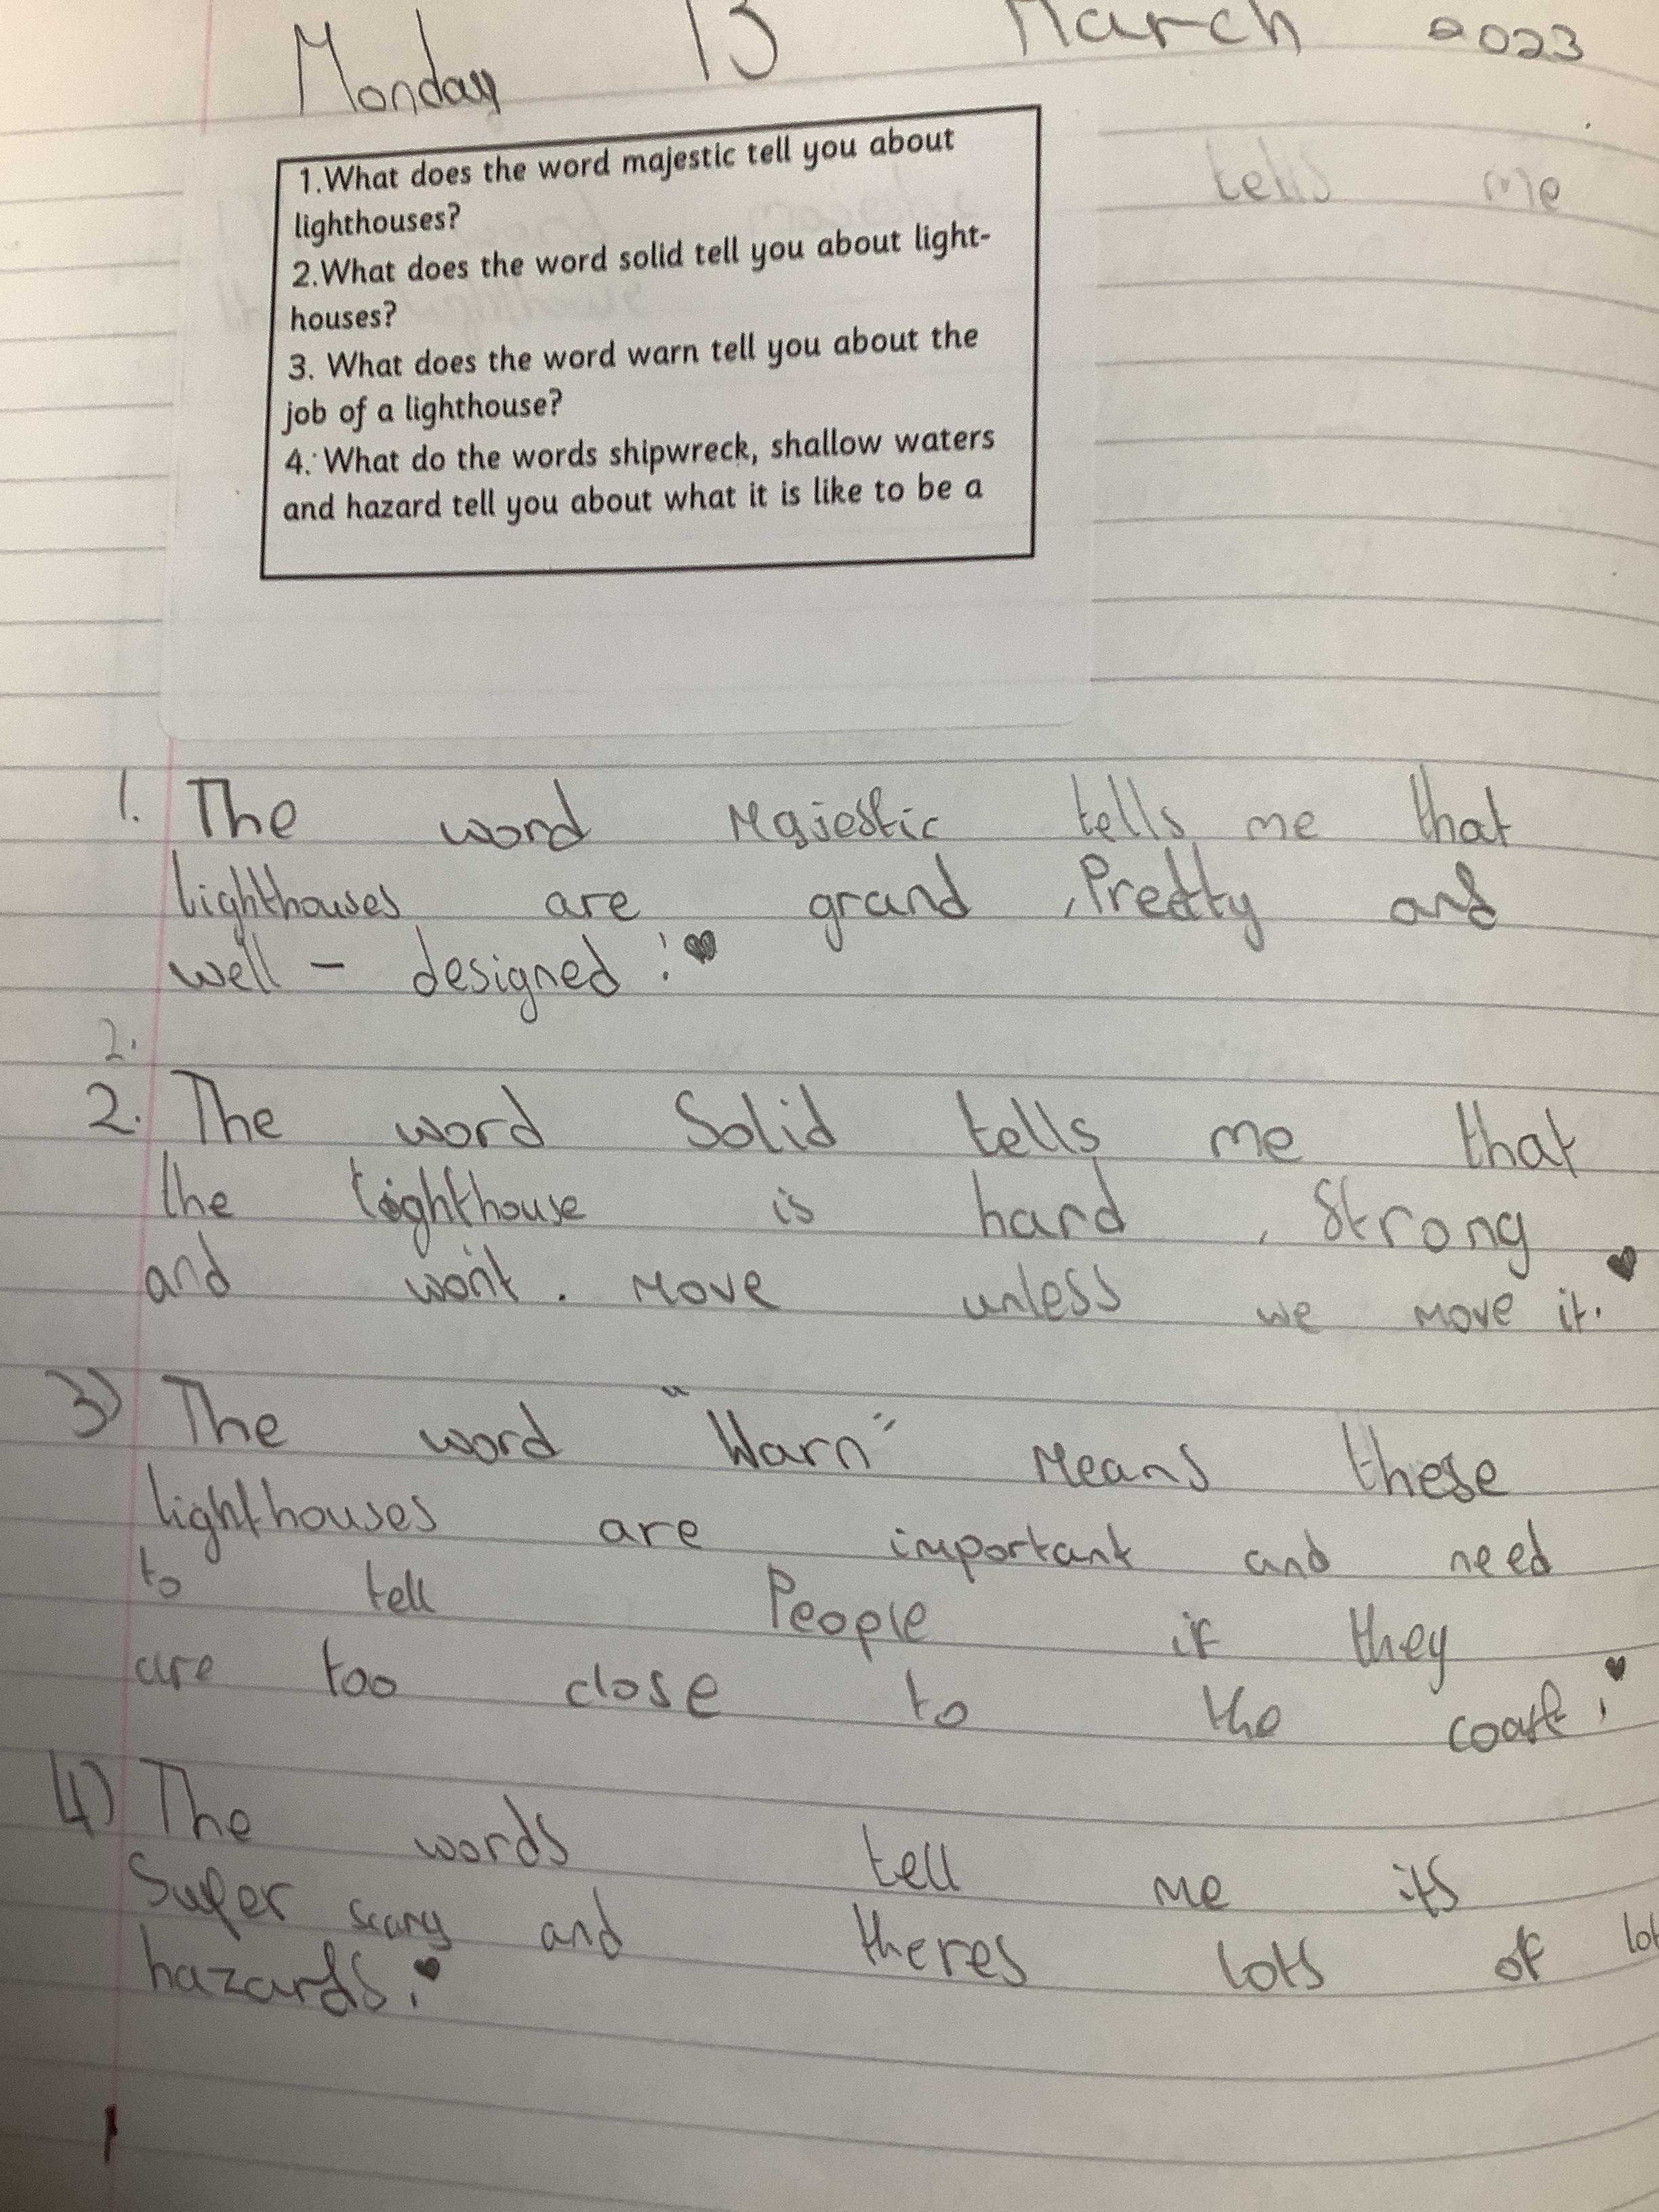 Monday 13 March 2023
1.What does the word majestic tell you about
lighthouses?
2.What does the word solid tell you about light-
houses?
3. What does the word warn tell you about the
job of a lighthouse?
4. What do the words shipwreck, shallow waters
and hazard tell you about what it is like to be a
tells me
1. The word Majestic tells me that
lighthouses are grand , Pretty and
well - designed !
2.
2. The word Solid tells me that
the lighthouse is hard , Strong
and won't . Move unless we move it.
3) The word "Warn" Means these
lighthouses are important and need
to tell People if they
are too close to the coast !
4) The words tell me its
Super scary and theres lots of
hazards !